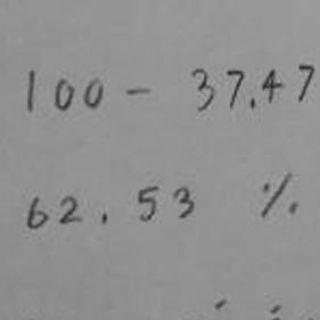 100 - 37.47
62.53 %